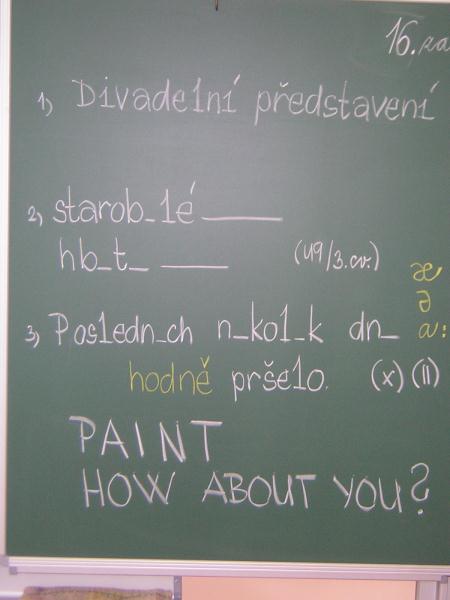 16. za
1) Divadelní představení
2) starob_lé ____
hb_t_ ____ (49/3.cv.)
æ
ə
3) Posledn_ch n_kol_k dn_ a:
hodně pršelo. (x) (ii)
PAINT
HOW ABOUT YOU?